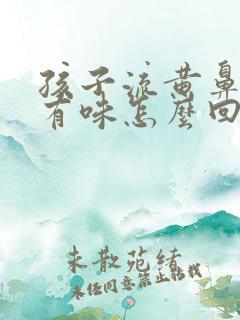 孩子流黄鼻
有味怎么回
未散苑绪
未经同意禁止转载